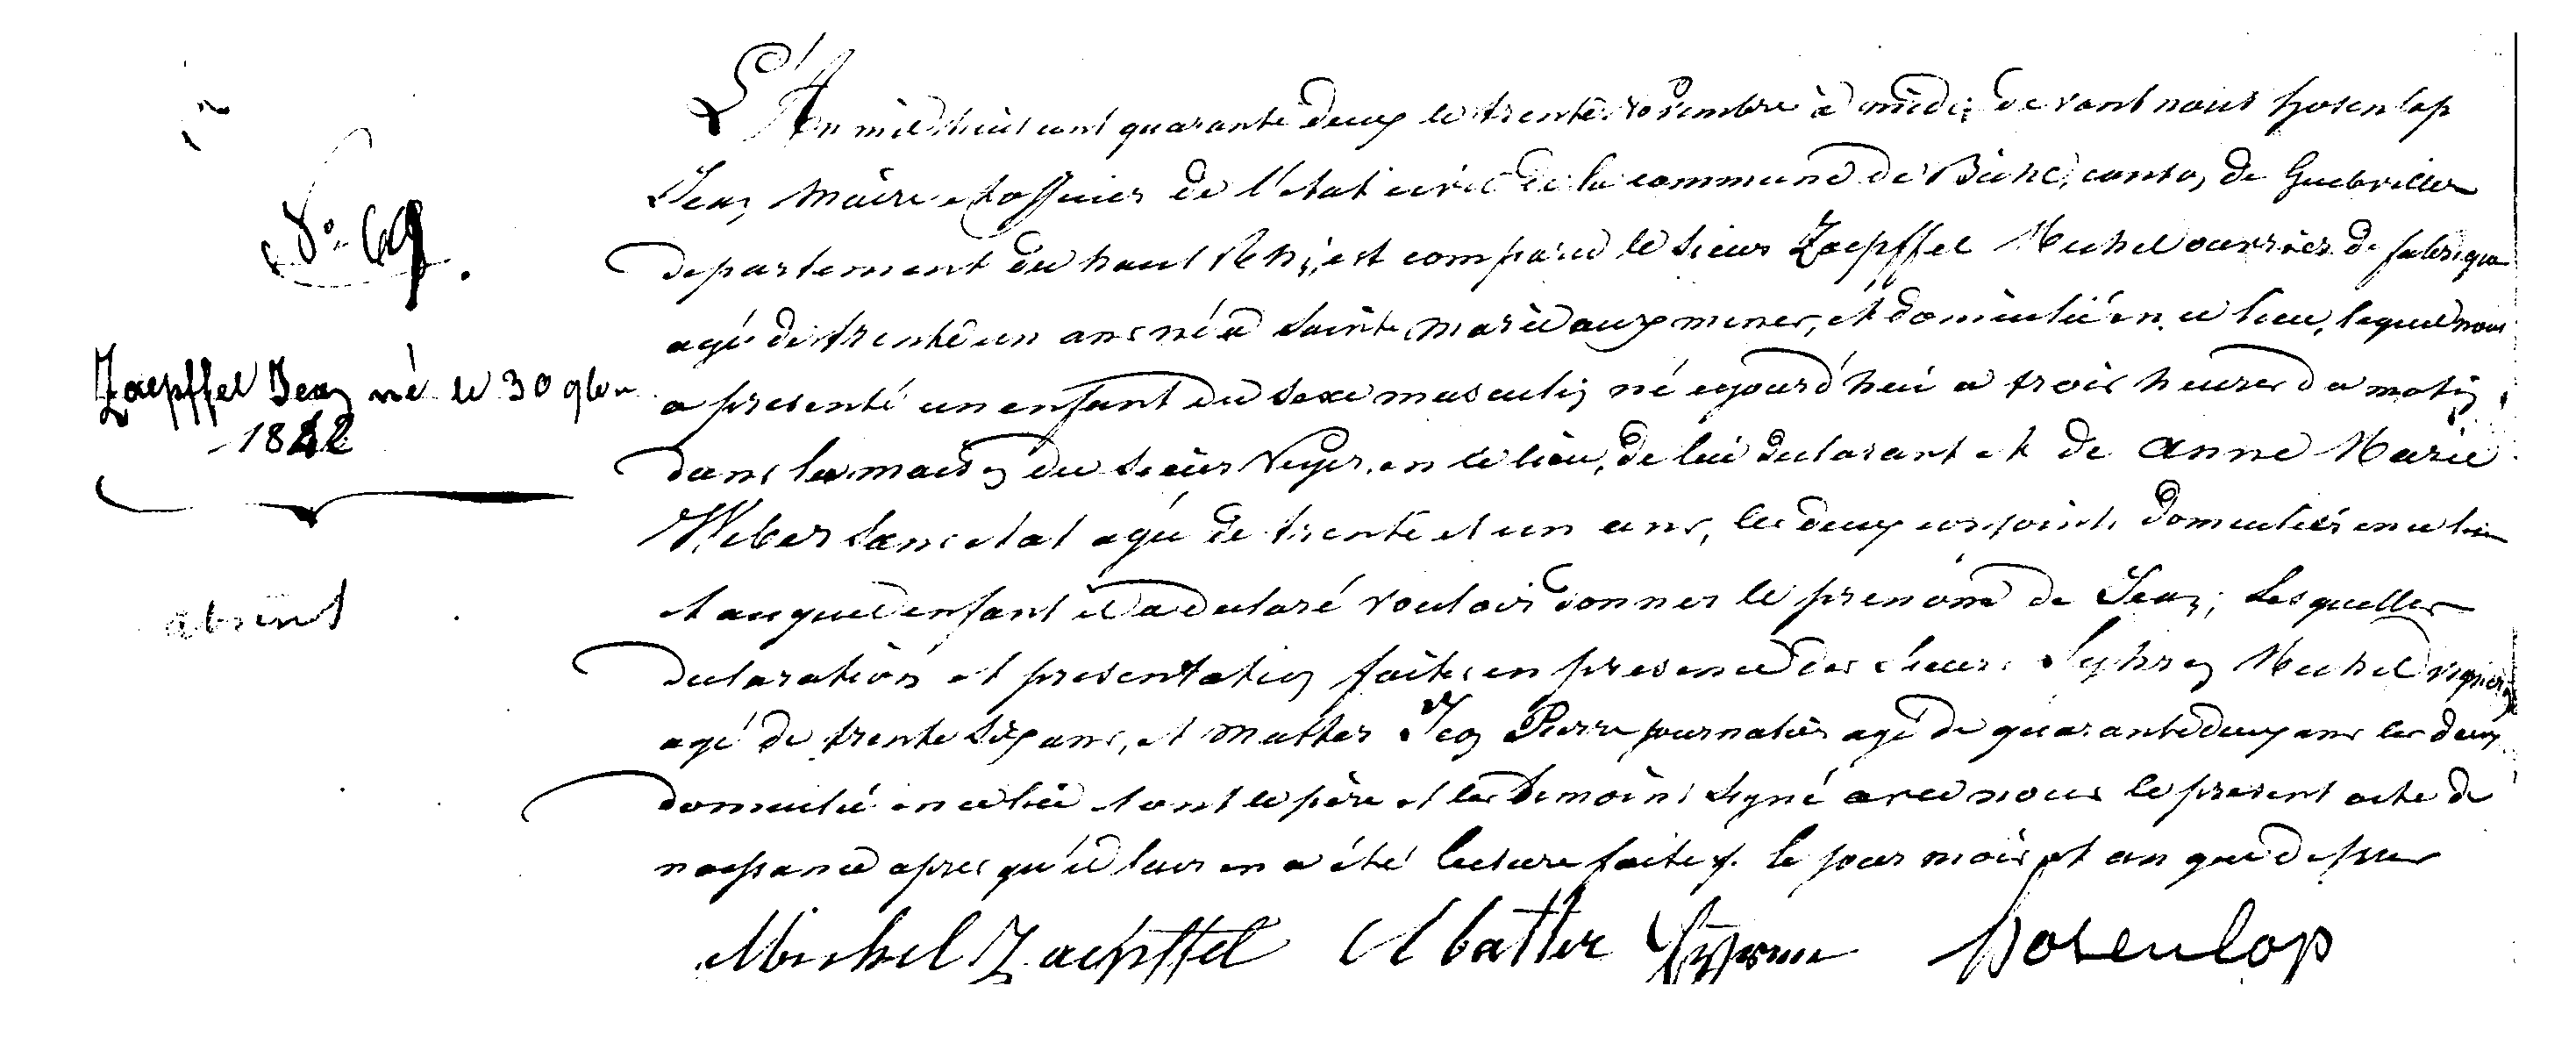 N° 69.
Zaepffel Jean né le 30 9bre
1842
absent
L'An mil huit cent quarante deux le trente novembre à midi devant nous hosenlop
Jean Maire et officier de l'etat civil de la commune de Bühl, canton de Guebviller
departement du haut Rhin, est comparu le sieur Zaepffel Michel ouvrier de fabrique
agé de trente un ans né à Sainte marie aux mines, et domicilié en ce lieu, lequel nous
a presenté un enfant du sexe masculin né aujourd'hui a trois heures du matin
dans la maison du sieur en ce lieu, de lui declarant et de Anne Marie
Weber sans etat agée de trente et un ans, les deux conjoints domiciliés en ce lieu
et auquel enfant il a declaré vouloir donner le prenom de Jean; Lesquelles
declaration et presentation faites en presence des sieurs Michel vigneron
agé de trente six ans, et Matter Jean Pierre journalier agé de quarante deux ans les deux
domicilié en ce lieu et ont le père et les temoins signé avec nous le present acte de
naissance apres qu'il leur en a été lecture faite. le jour mois et an que dessus
Michel Zaepffel Matter hosenlop